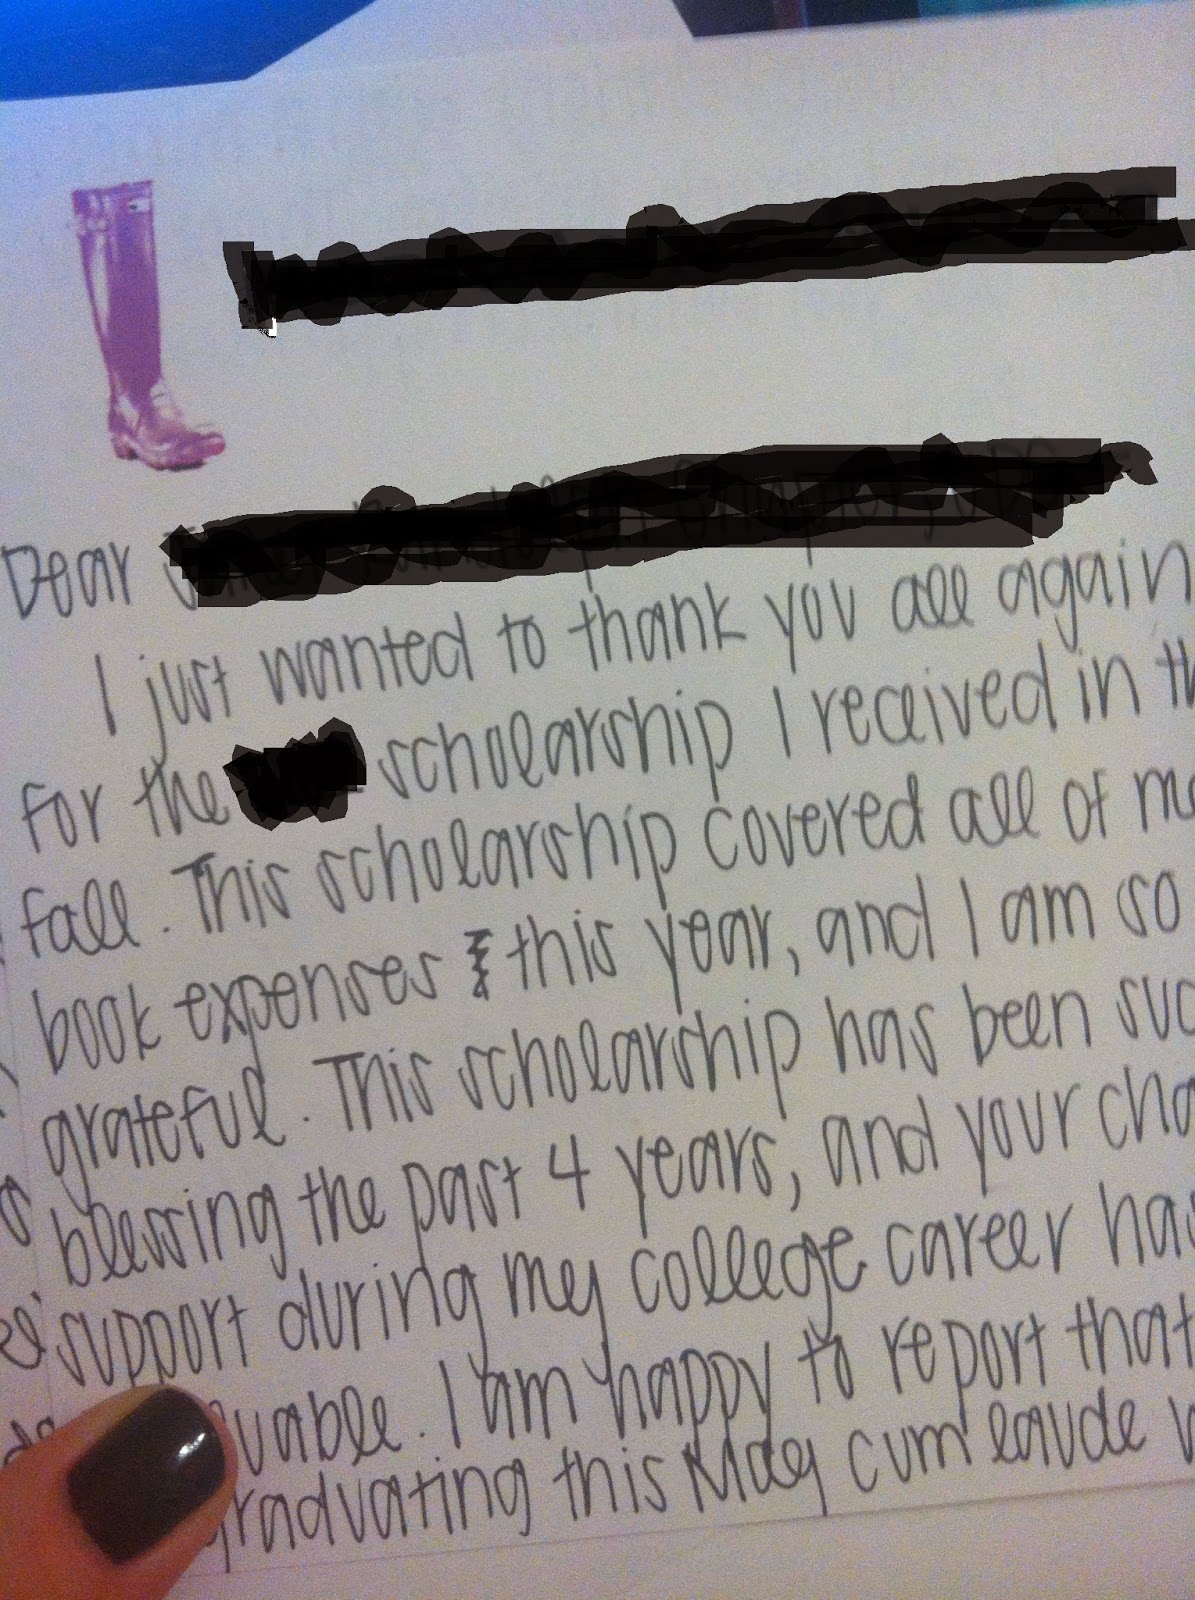 Dear
I just wanted to thank you all again
for the scholarship I received in
fall. This scholarship covered all of
book expenses this year, and I am so
grateful. This scholarship has been
blessing the past 4 years, and your
support during my college career
I am happy to report that
graduating this May cum laude